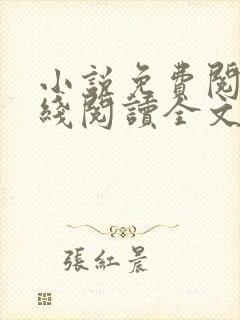 小說免費閱
綫閱讀全文
張紅晨